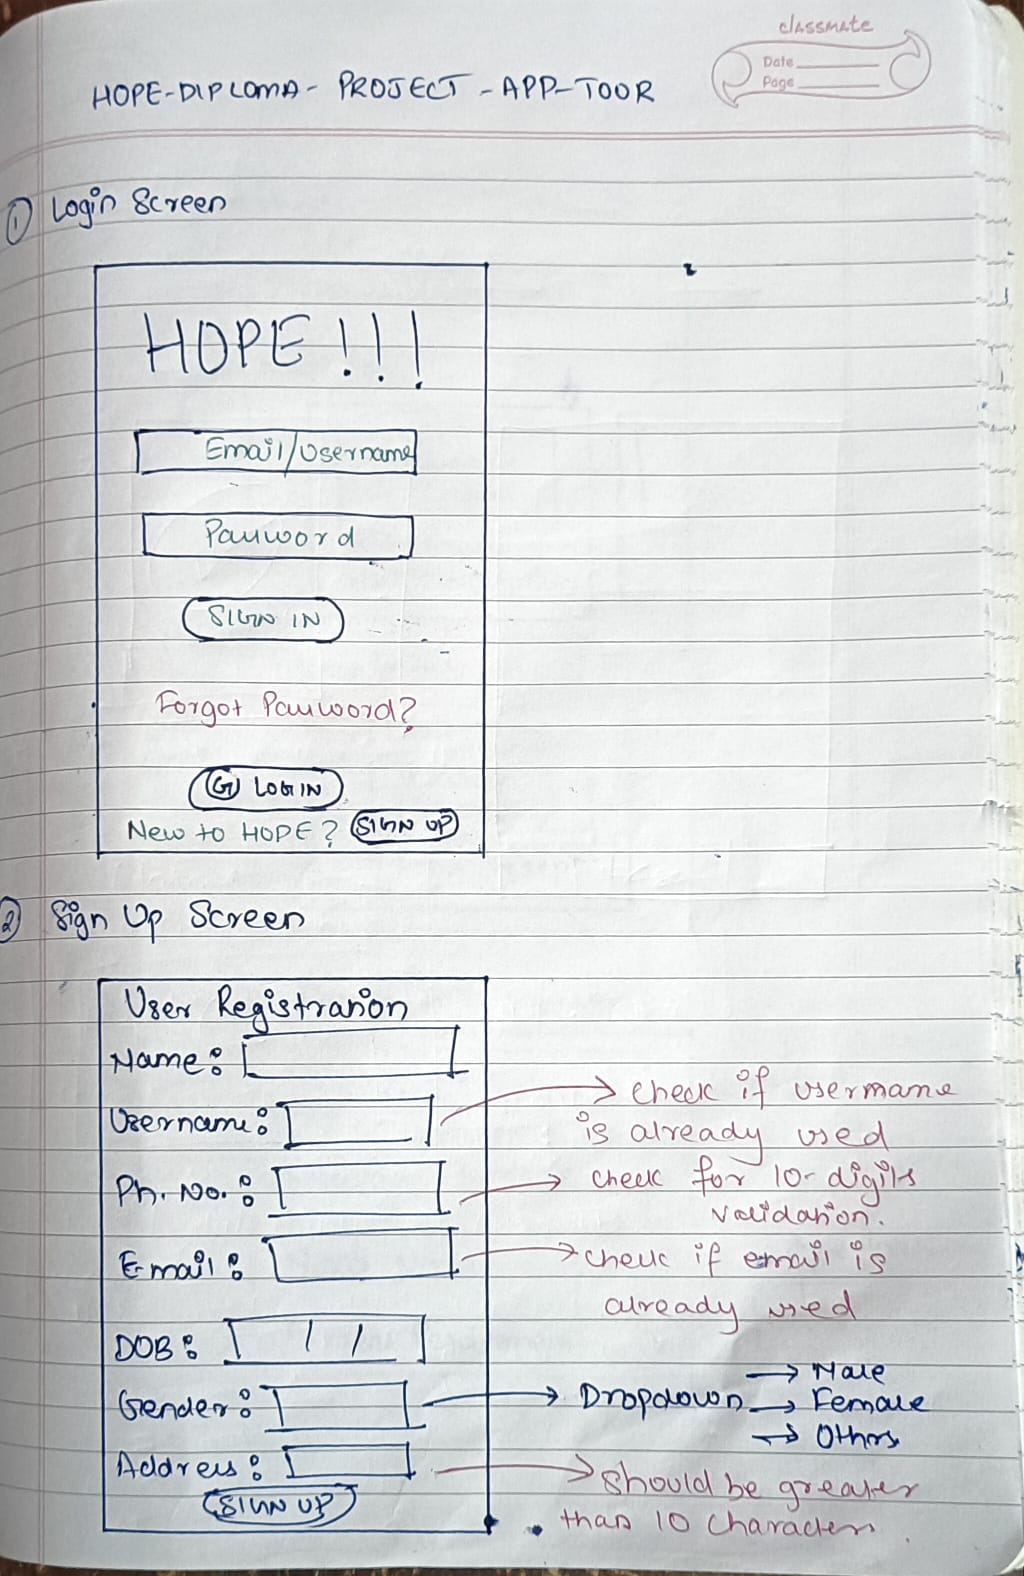 classmate
Date
Page
HOPE-DIPLOMA- PROJECT - APP-TOOR
1 Login Screen
HOPE!!!
Email/Username
Password
SIGN IN
Forgot Password?
G LOGIN
New to HOPE? SIGN UP
2 Sign Up Screen
User Registration
Name:
Username: → check if username
is already used
Ph. No.: → check for 10-digits
validation.
Email: → check if email is
already used
DOB: / /
Gender: → Dropdown → Male
→ Female
→ Othrs
Address: → should be greater
than 10 characters.
SIGN UP